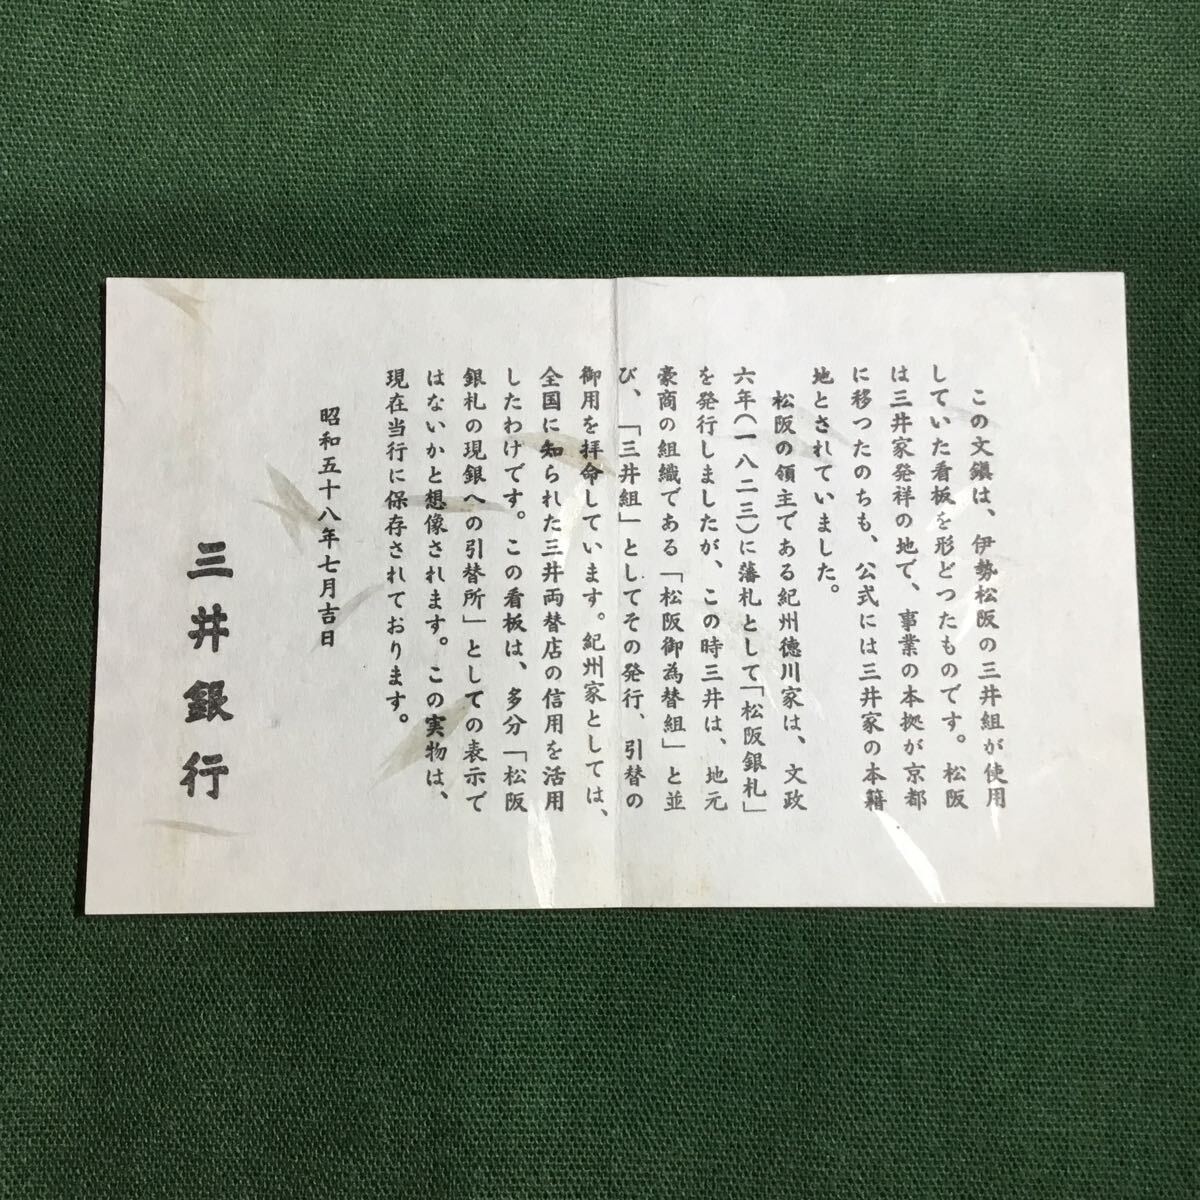 この文鎮は、伊勢松阪の三井組が使用
していた看板を形どつたものです。松阪
は三井家発祥の地で、事業の本拠が京都
に移つたのちも、公式には三井家の本籍
地とされていました。
松阪の領主である紀州徳川家は、文政
六年(一八二三)に藩札として「松阪銀札」
を発行しましたが、この時三井は、地元
豪商の組織である「松阪御為替組」と並
び、「三井組」としてその発行、引替の
御用を拝命しています。紀州家としては、
全国に知られた三井両替店の信用を活用
したわけです。この看板は、多分「松阪
銀札の現銀への引替所」としての表示で
はないかと想像されます。この実物は、
現在当行に保存されております。
昭和五十八年七月吉日
三井銀行